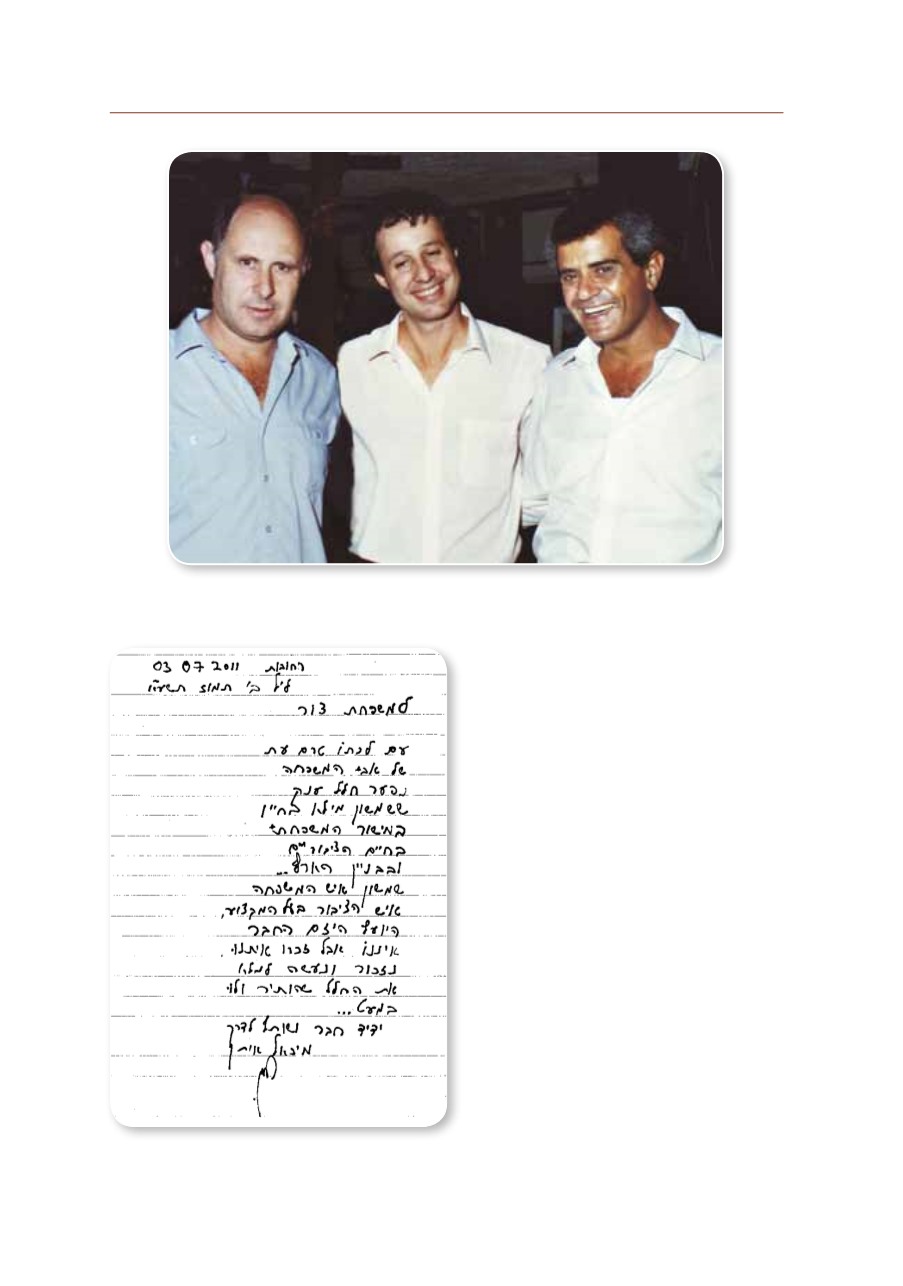 רחובות 03 07 2011
ליל ב' תמוז תשע"א
למשפחת צור
עם לכתו טרם עת
של אבי המשפחה
נפער חלל ענק
ששמשון מילא בחייו
במישור המשפחתי
בחיים הציבוריים
ובבניין הארץ...
שמשון איש המשפחה
איש הציבור בעל המקצוע,
היועץ היזם החבר
איננו אבל זכרו איתנו.
נזכור ונעשה למלא
את החלל שהותיר ולו
במעט...
ידיד חבר ושותף לדרך
מיכאל איתן